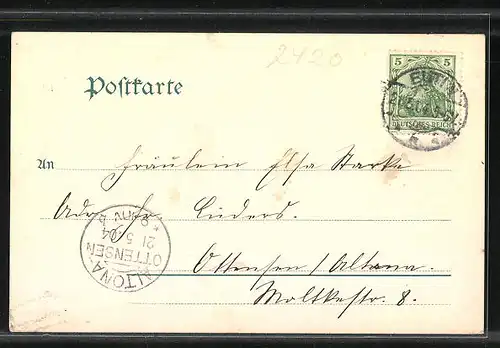 2420
Postkarte
5 5
EUTIN
DEUTSCHES REICH
An Fräulein Elsa Starke
Adr. Fr. Lüders.
Ottensen/Altona.
Moltkestr. 8.
ALTONA
OTTENSEN
21 5 04